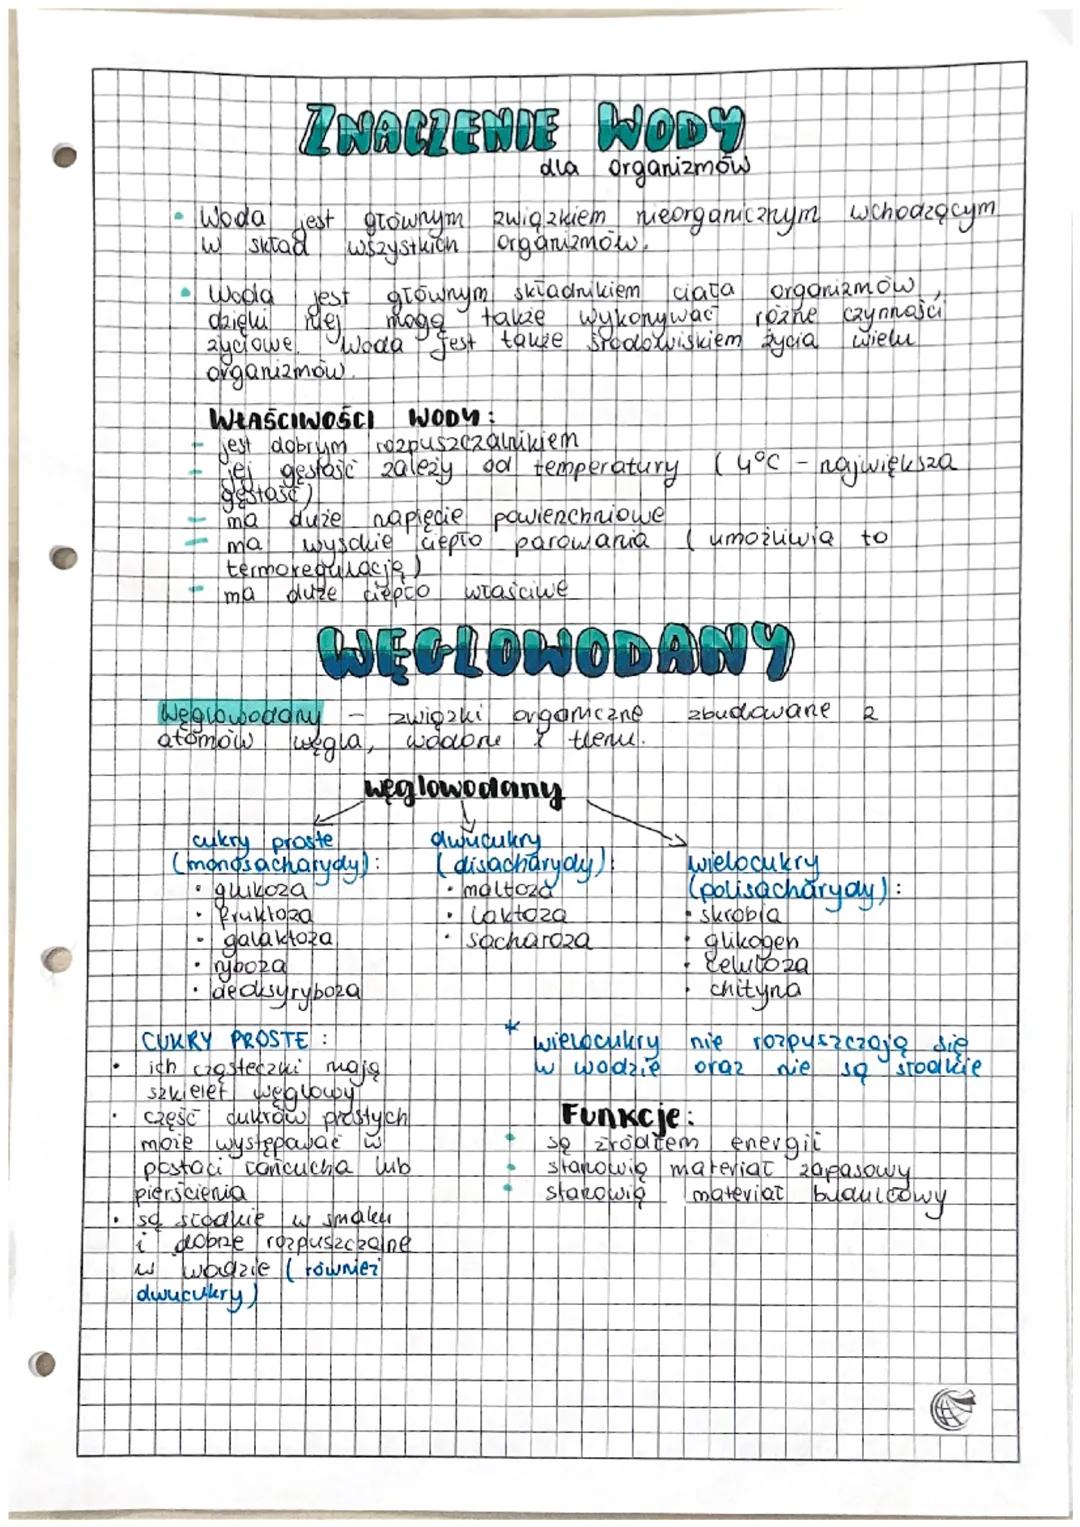 ZNACZENIE WODY
dla organizmów
• Woda jest głównym związkiem nieorganicznym wchodzącym
w skład wszystkich organizmów.
• Woda jest głównym składnikiem ciała organizmów,
dzięki niej mogą także wykonywać różne czynności
życiowe. Woda jest także środowiskiem życia wielu
organizmów.
WŁAŚCIWOŚCI WODY:
- jest dobrym rozpuszczalnikiem
- jej gęstość zależy od temperatury (4°C - największa
gęstość)
- ma duże napięcie powierzchniowe
- ma wysokie ciepło parowania (umożliwia to
termoregulację)
- ma duże ciepło właściwe
WĘGLOWODANY
Węglowodany - związki organiczne zbudowane z
atomów węgla, wodoru i tlenu.
węglowodany
cukry proste
(monosacharydy):
• glukoza
• fruktoza
• galaktoza
• ryboza
• deoksyryboza
dwucukry
(disacharydy):
• maltoza
• laktoza
• sacharoza
wielocukry
(polisacharydy):
• skrobia
• glikogen
• celuloza
• chityna
CUKRY PROSTE:
• ich cząsteczki mają
szkielet węglowy
• część cukrów prostych
może występować w
postaci łańcucha lub
pierścienia
• są słodkie w smaku
i dobrze rozpuszczalne
w wodzie (również
dwucukry)
* wielocukry nie rozpuszczają się
w wodzie oraz nie są słodkie
Funkcje:
• są źródłem energii
• stanowią materiał zapasowy
• stanowią materiał budulcowy